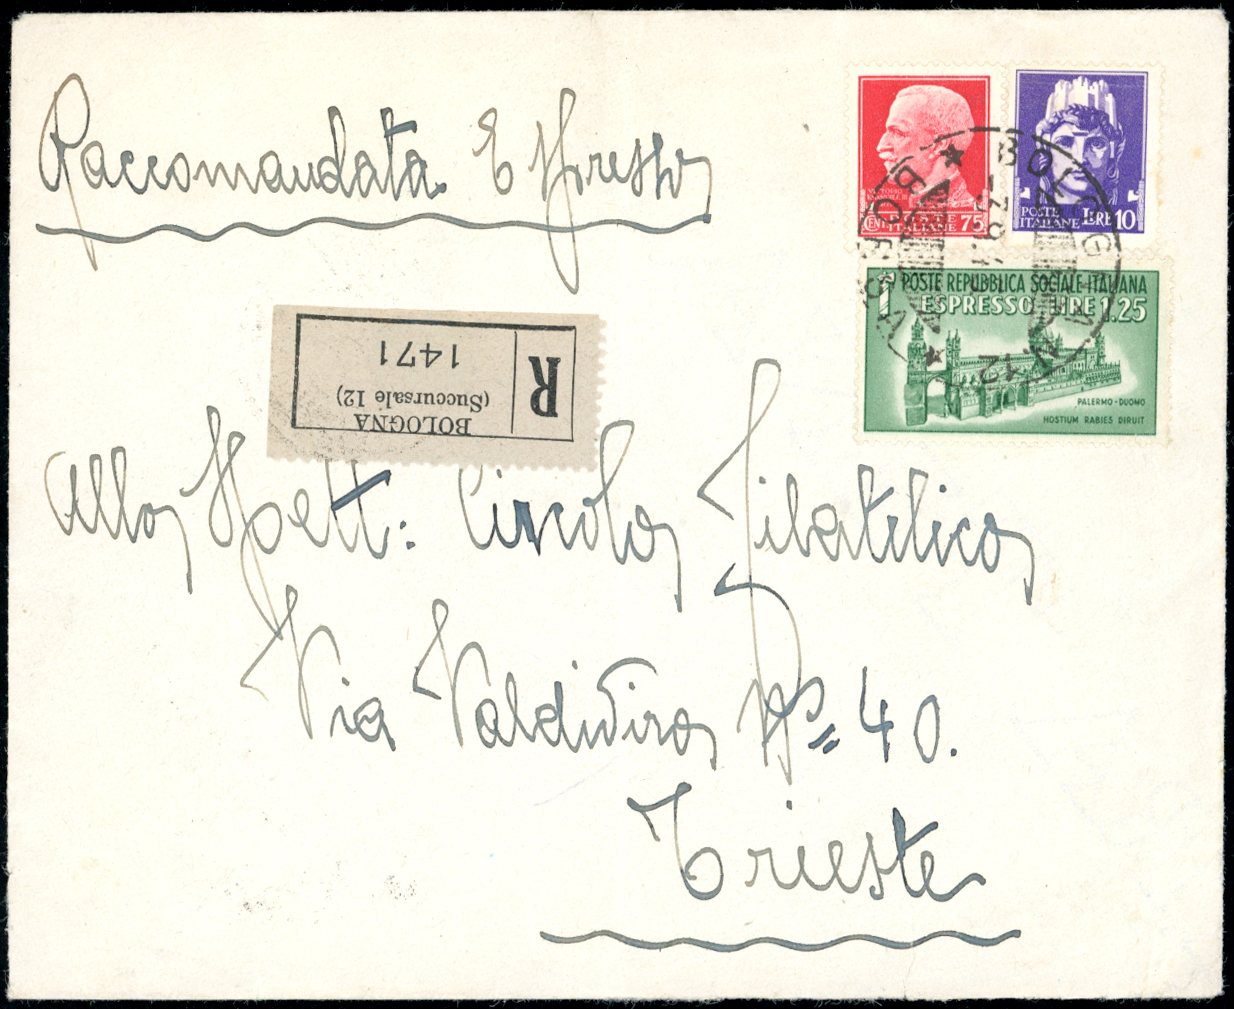 Raccomandata Espresso
VITTORIO
CENT. 75
POSTE ITALIANE
POSTE
ITALIANE
LIRE 10
BOLOGNA
N. 12
POSTE REPUBBLICA SOCIALE ITALIANA
ESPRESSO LIRE 1.25
PALERMO - DUOMO
HOSTIUM RABIES DIRUIT
R
BOLOGNA
(Succursale 12)
1471
Allo Spett: Circolo Filatelico
Via Valdiviro No= 40.
Trieste